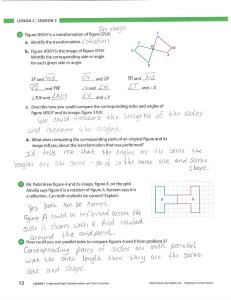 LESSON 1 | SESSION 2
Figure WXOY is a transformation of figure STUV.
a. Identify the transformation. rotation
b. Figure WXOY is the image of figure STUV.
Identify the corresponding side or angle
for each given side or angle.
ST and WX
and UV
TU and
and ∠S and
and ∠X
∠TUV and
c. Describe how you could compare the corresponding sides and angles of
figure WXOY and its image, figure STUV.
We could measure the lengths of the sides
and measure the angles.
d. What does comparing the corresponding parts of an original figure and its
image tell you about the transformation that was performed?
It tells me that the angles are the same the
lengths are the same - so it is the same size and same
shape.
Ms. Patel draws figure A and its image, figure K, on the grid.
Amelia says figure K is a rotation of figure A. Kareem says it is
a reflection. Can both students be correct? Explain.
Yes both can be correct.
Figure A could be reflected across the
side it shares with K. And rotated
around the midpoint.
How could you use parallel sides to compare figures A and K from problem 3?
Corresponding pairs of sides are both parallel
with the same length then they are the same
size and shape.
12
LESSON 1